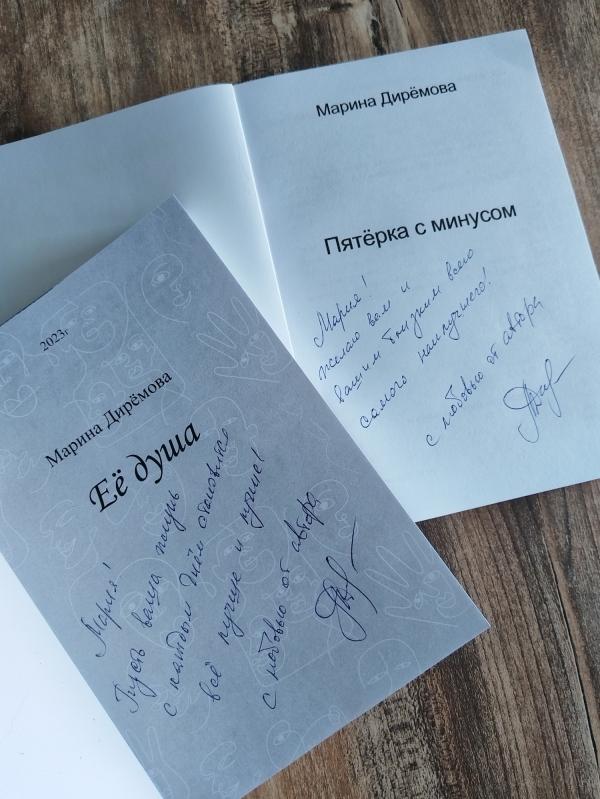 Марина Дирёмова
Пятёрка с минусом
Мария!
желаю вам и
вашим близким всего
самого наилучшего!
с любовью от автора
2023г
Марина Дирёмова
Её душа
Мария!
Пусть ваша жизнь
с каждым днём становится
всё лучше и лучше!
с любовью от автора